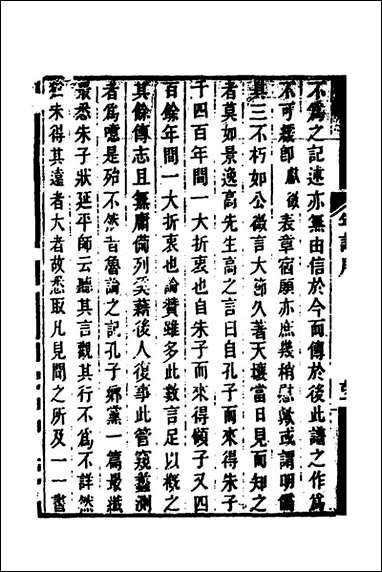 不爲之記述亦無由信於今而傳於後此譜之作爲
不可緩即獻徵表章宿願亦庶幾稍慰歟或謂明儒
其三不朽如公微言大節久著天壤當日見而知之
者莫如景逸高先生高之言曰自孔子而來得朱子
千四百年間一大折衷也自朱子而來得顧子又四
百餘年間一大折衷也論贊雖多此數言足以概之
其餘傳志且無庸備列奚藉後人復事此管窺蠡測
者爲噫是殆不然昔魯論之記孔子鄉黨一篇最纖
最悉朱子狀延平師云聽其言觀其行不爲不詳然
朱得其遠者大者故悉取凡見聞之所及一一書
年譜序